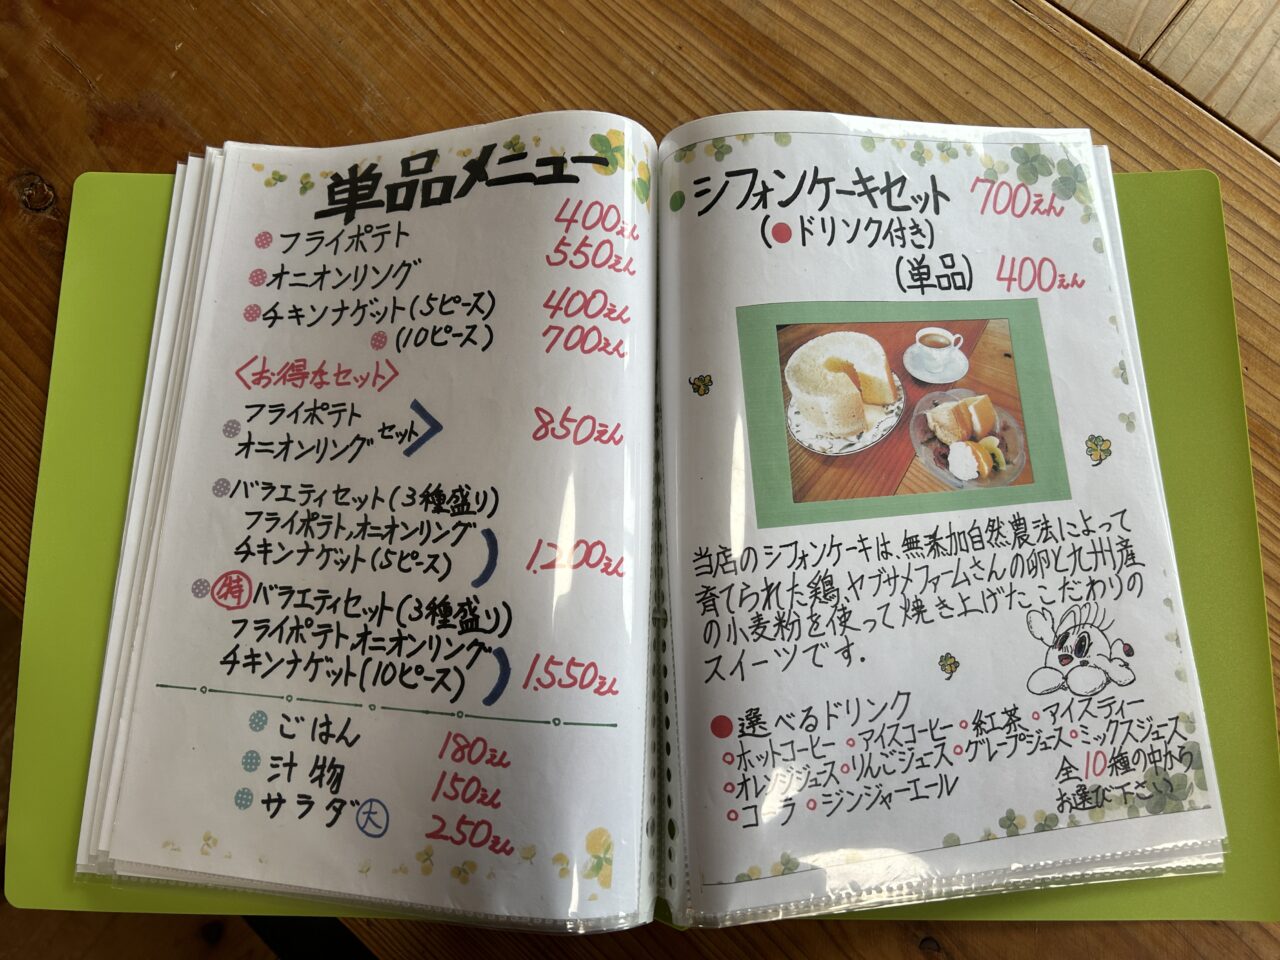 単品メニュー
フライポテト 400えん
オニオンリング 550えん
チキンナゲット(5ピース) 400えん
(10ピース) 700えん
〈お得なセット〉
フライポテト
オニオンリング セット 850えん
バラエティセット(3種盛り)
フライポテト,オニオンリング
チキンナゲット(5ピース) 1.200えん
特 バラエティセット(3種盛り)
フライポテト,オニオンリング
チキンナゲット(10ピース) 1.550えん
ごはん 180えん
汁物 150えん
サラダ 大 250えん
シフォンケーキセット 700えん
(●ドリンク付き)
(単品) 400えん
当店のシフォンケーキは、無添加自然農法によって
育てられた鶏、ヤブサメファームさんの卵と九州産
の小麦粉を使って焼き上げたこだわりの
スイーツです.
●選べるドリンク
ホットコーヒー アイスコーヒー 紅茶 アイスティー
オレンジジュース りんごジュース グレープジュース ミックスジュース
コーラ ジンジャーエール
全10種の中から
お選び下さい